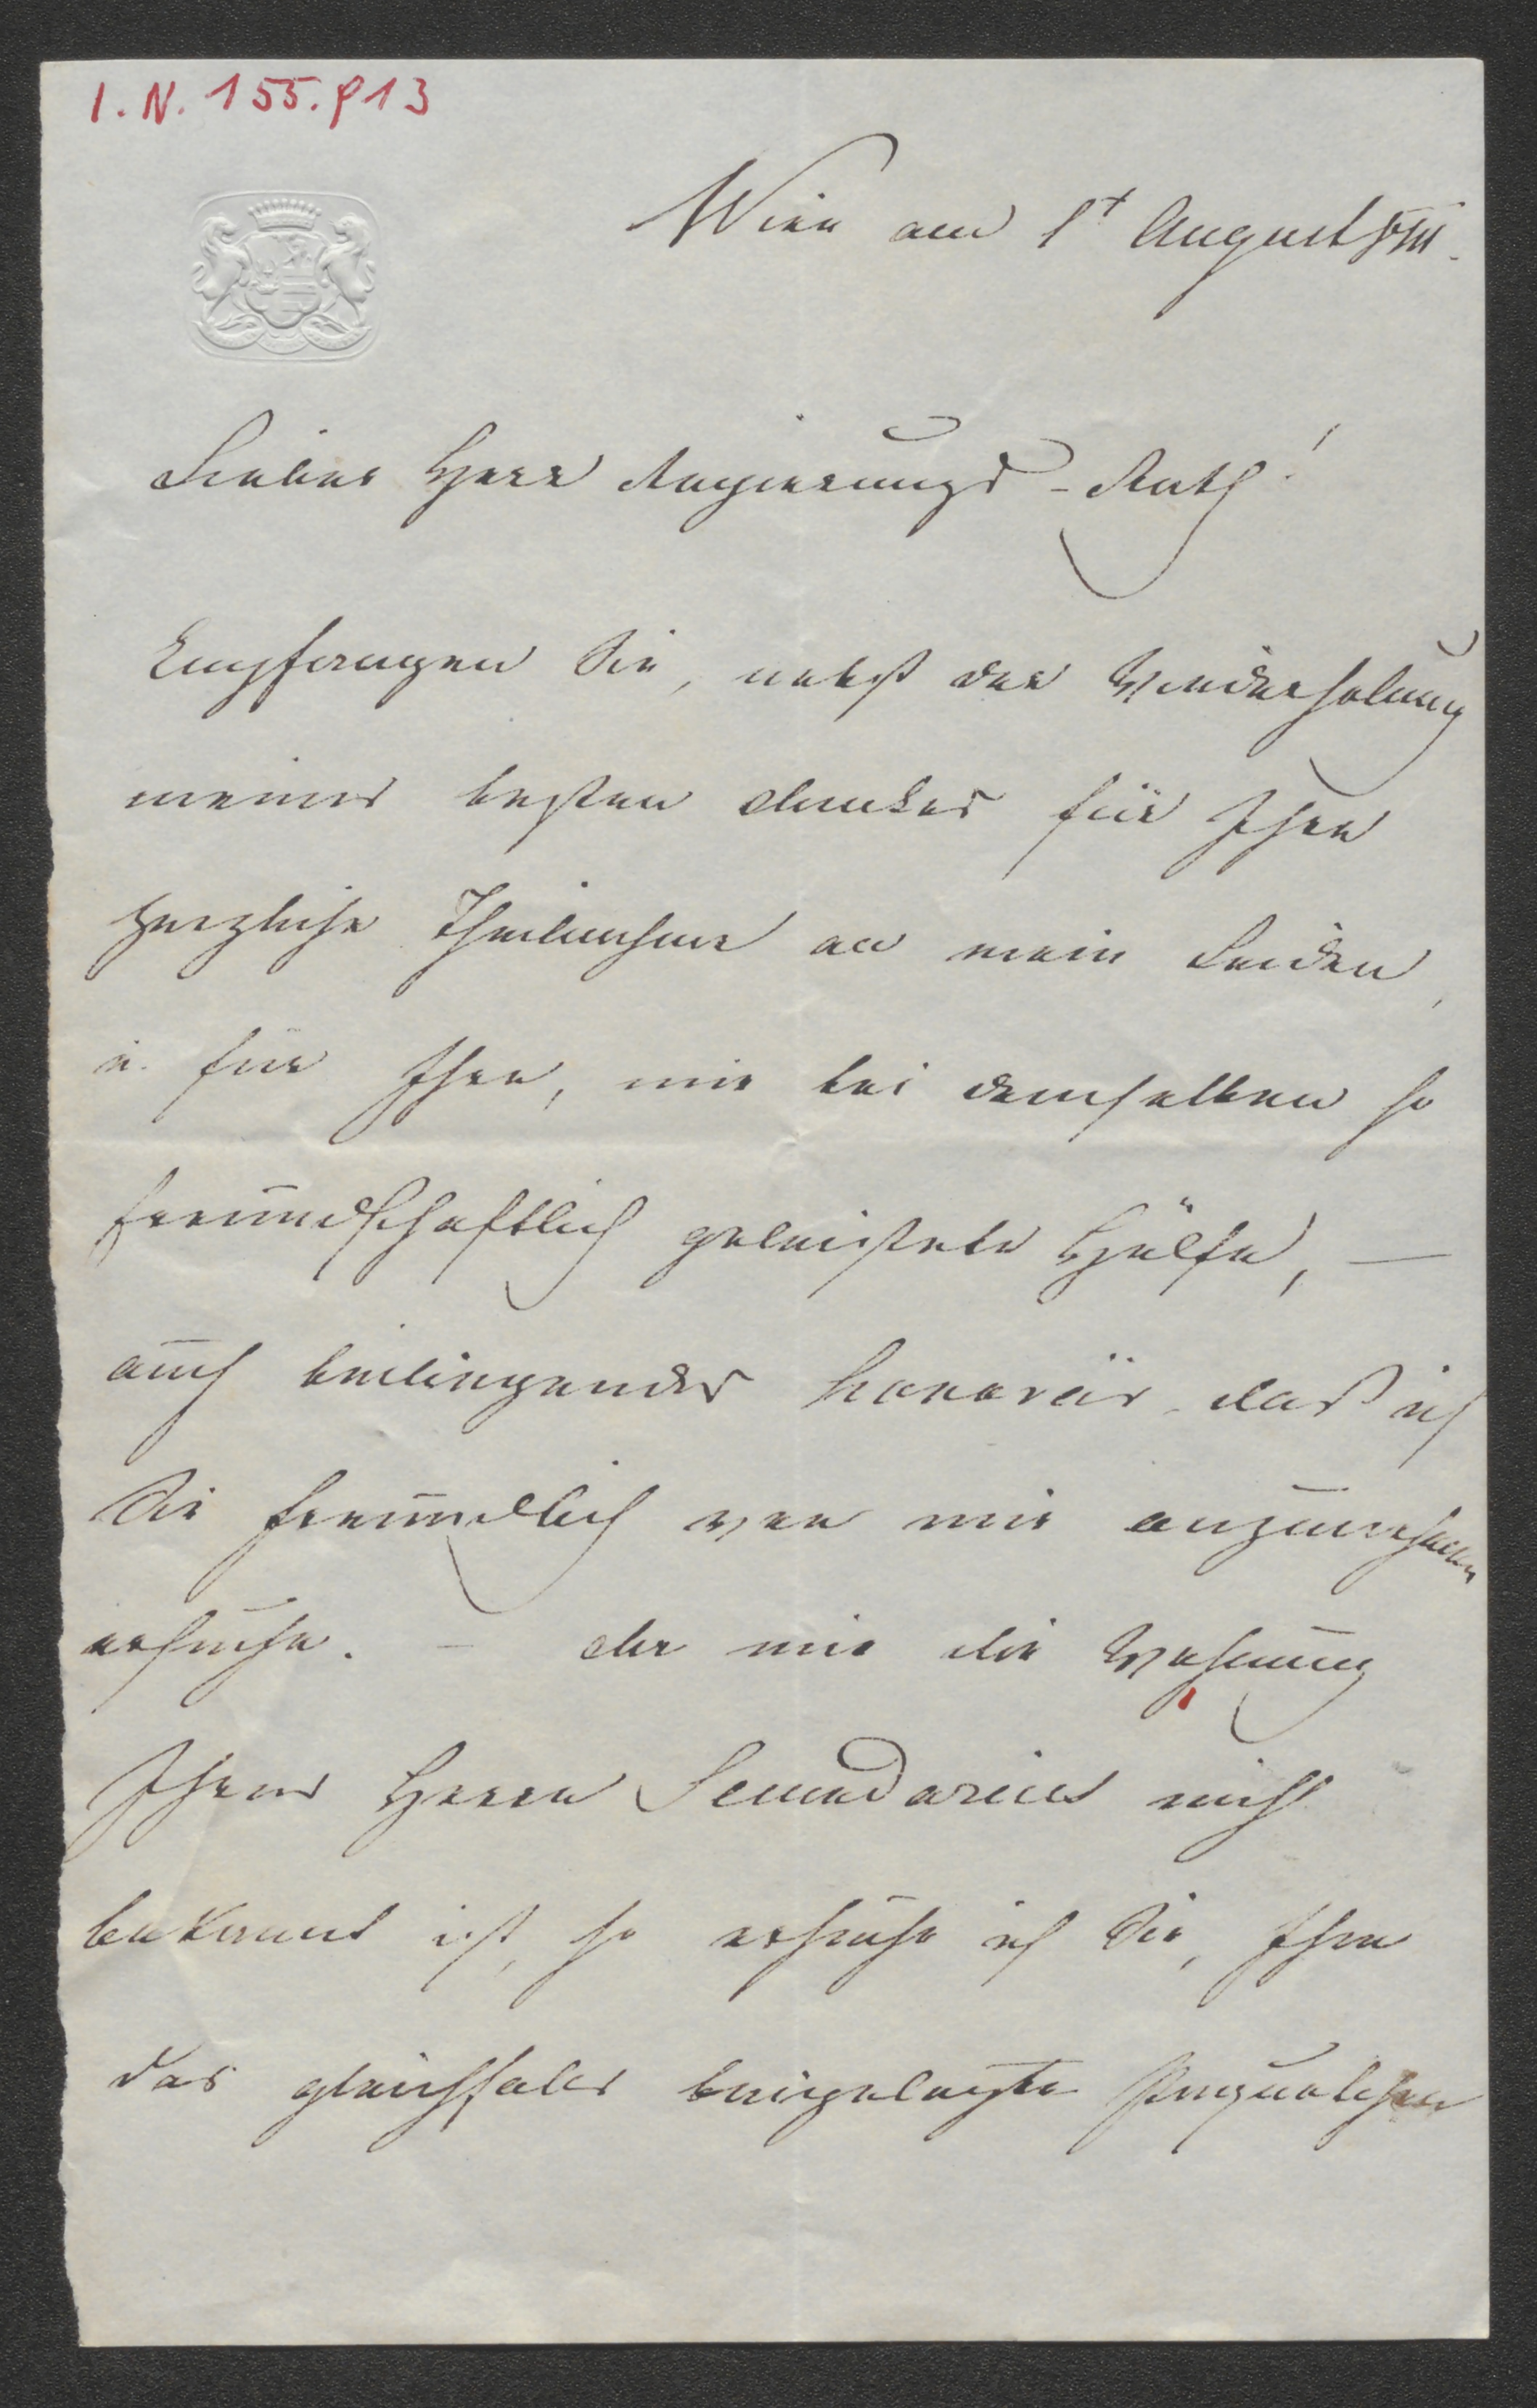 I. N. 155.813
Wien am 1t August
Lieber Herr Regierungs-Rath!
Empfangen Sie, nebst der Wiederholung
meines besten Dankes für Ihre
herzliche Theilnahme an mein Leiden,
u. für Ihre, mir bei demselben so
freundschaftlich geleistete Hülfe, —
auch beiliegendes honorär, das ich
Sie freundlich von mir anzunehmen
ersuche. — Da mir die Wohnung
Ihres Herrn Secundarius nicht
bekannt ist, so ersuche ich Sie, Ihm
das gleichfalls beigelegte